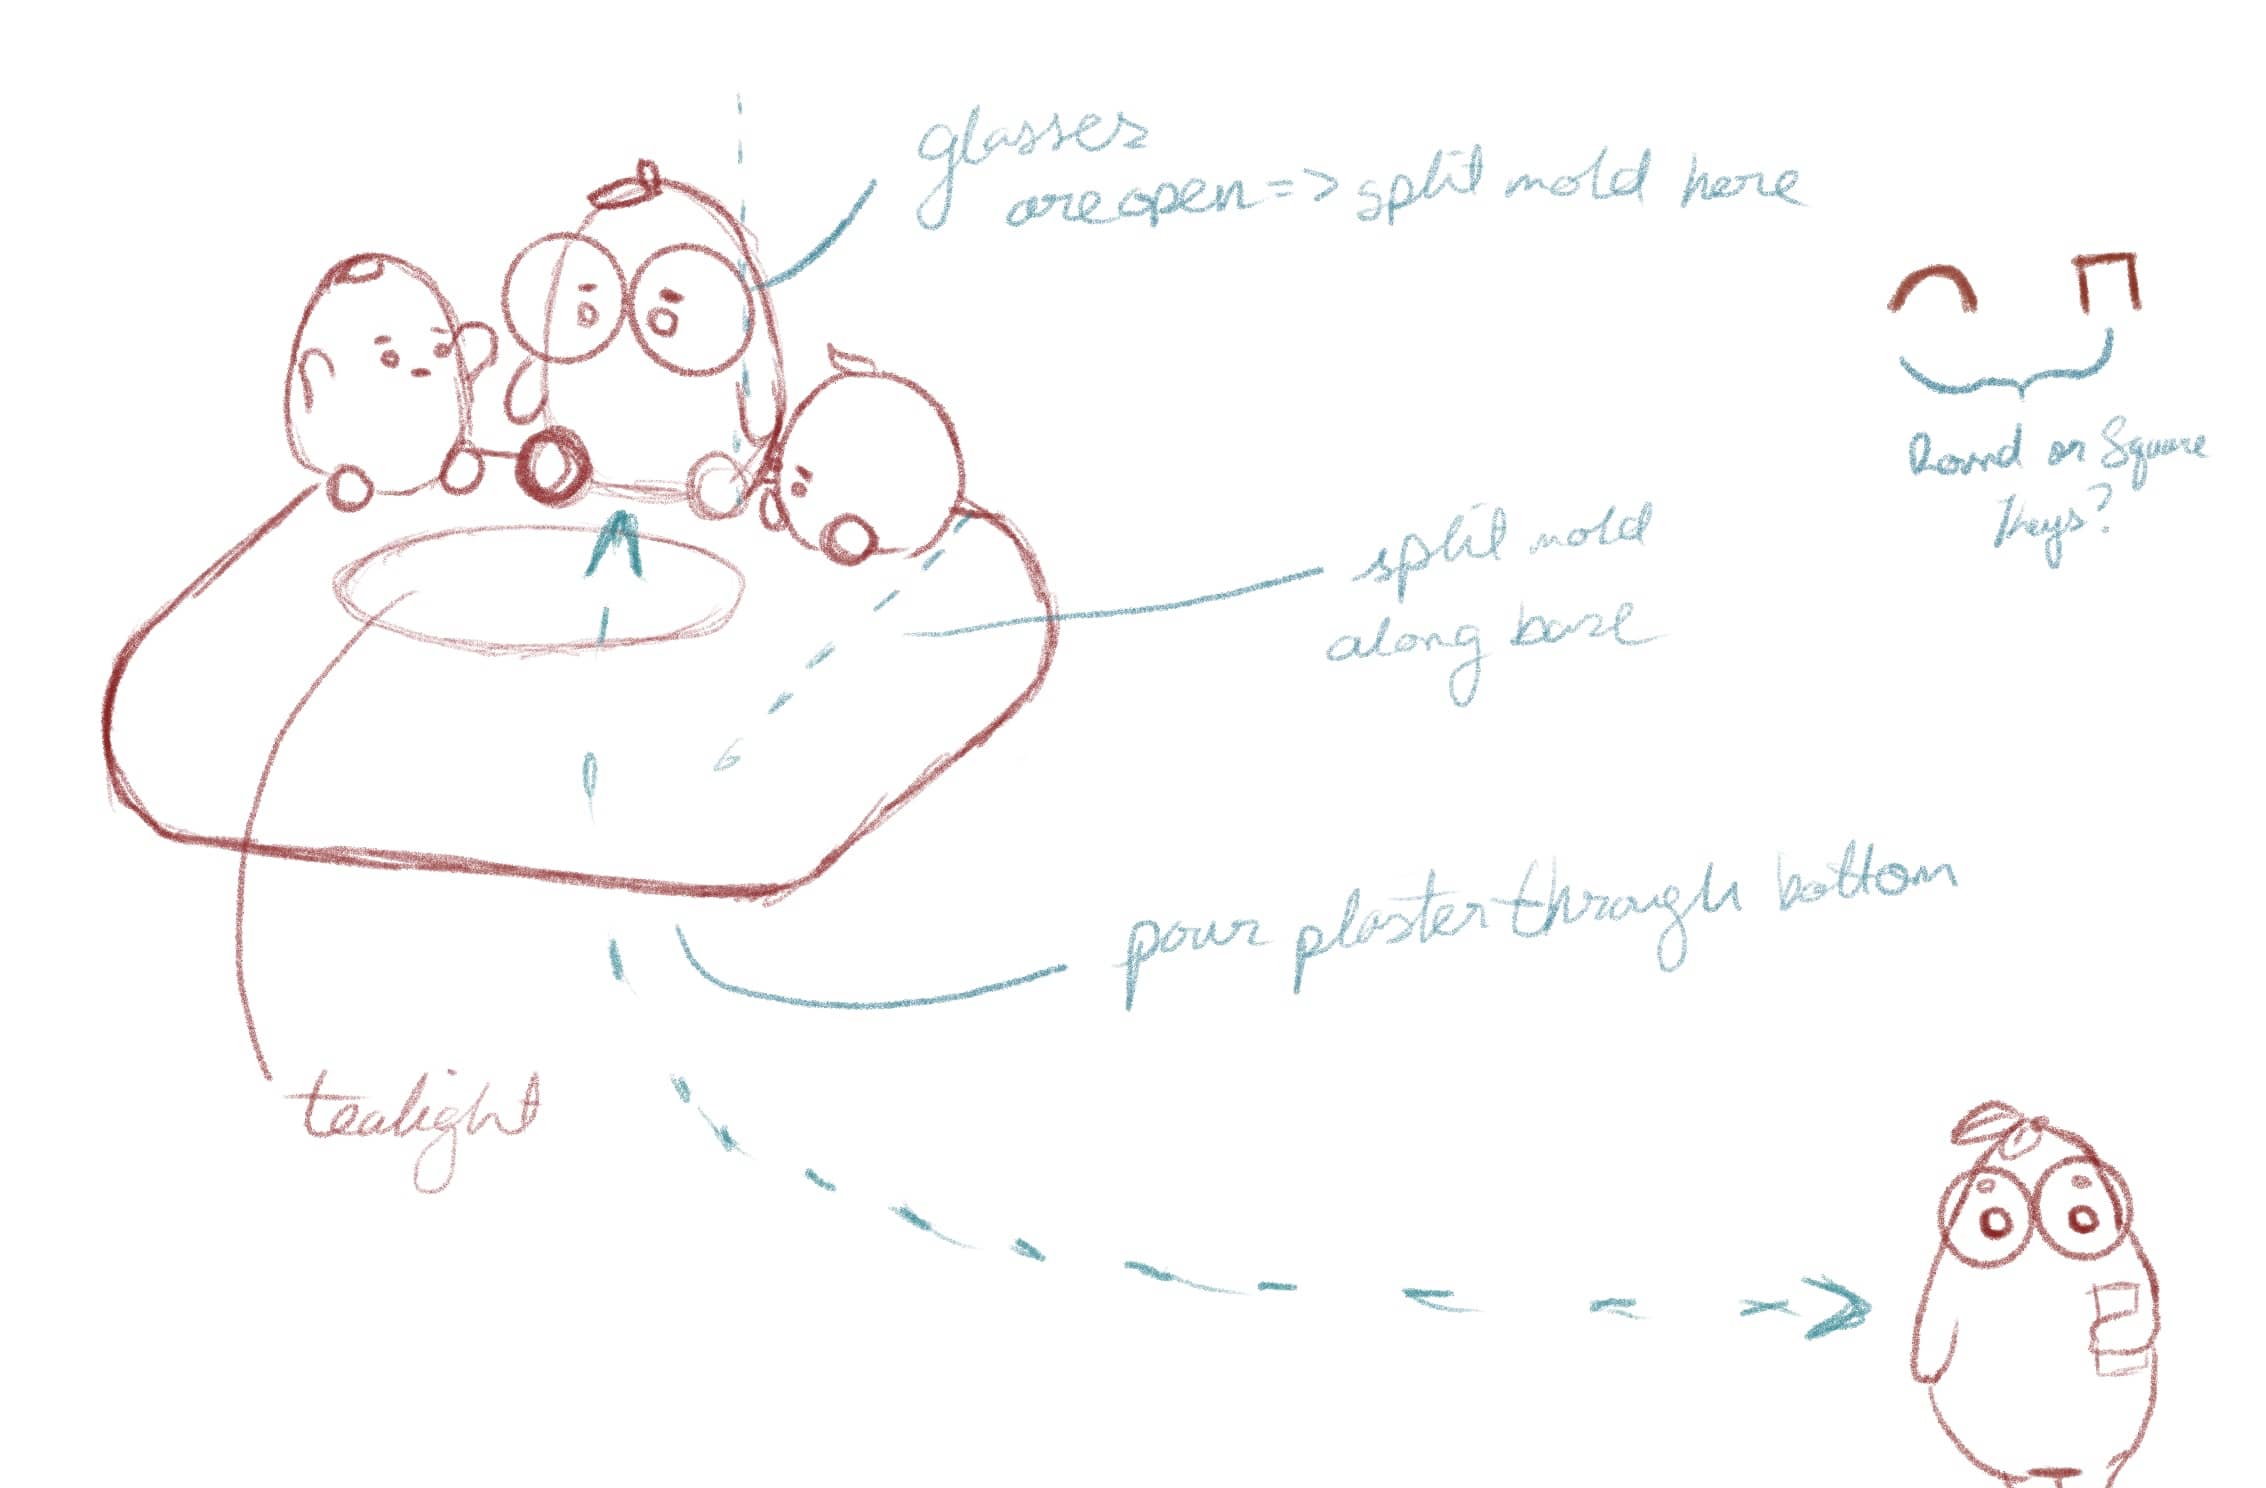 glasses
are open => split mold here
Round or Square
Keys?
split mold
along base
pour plaster through bottom
tealight